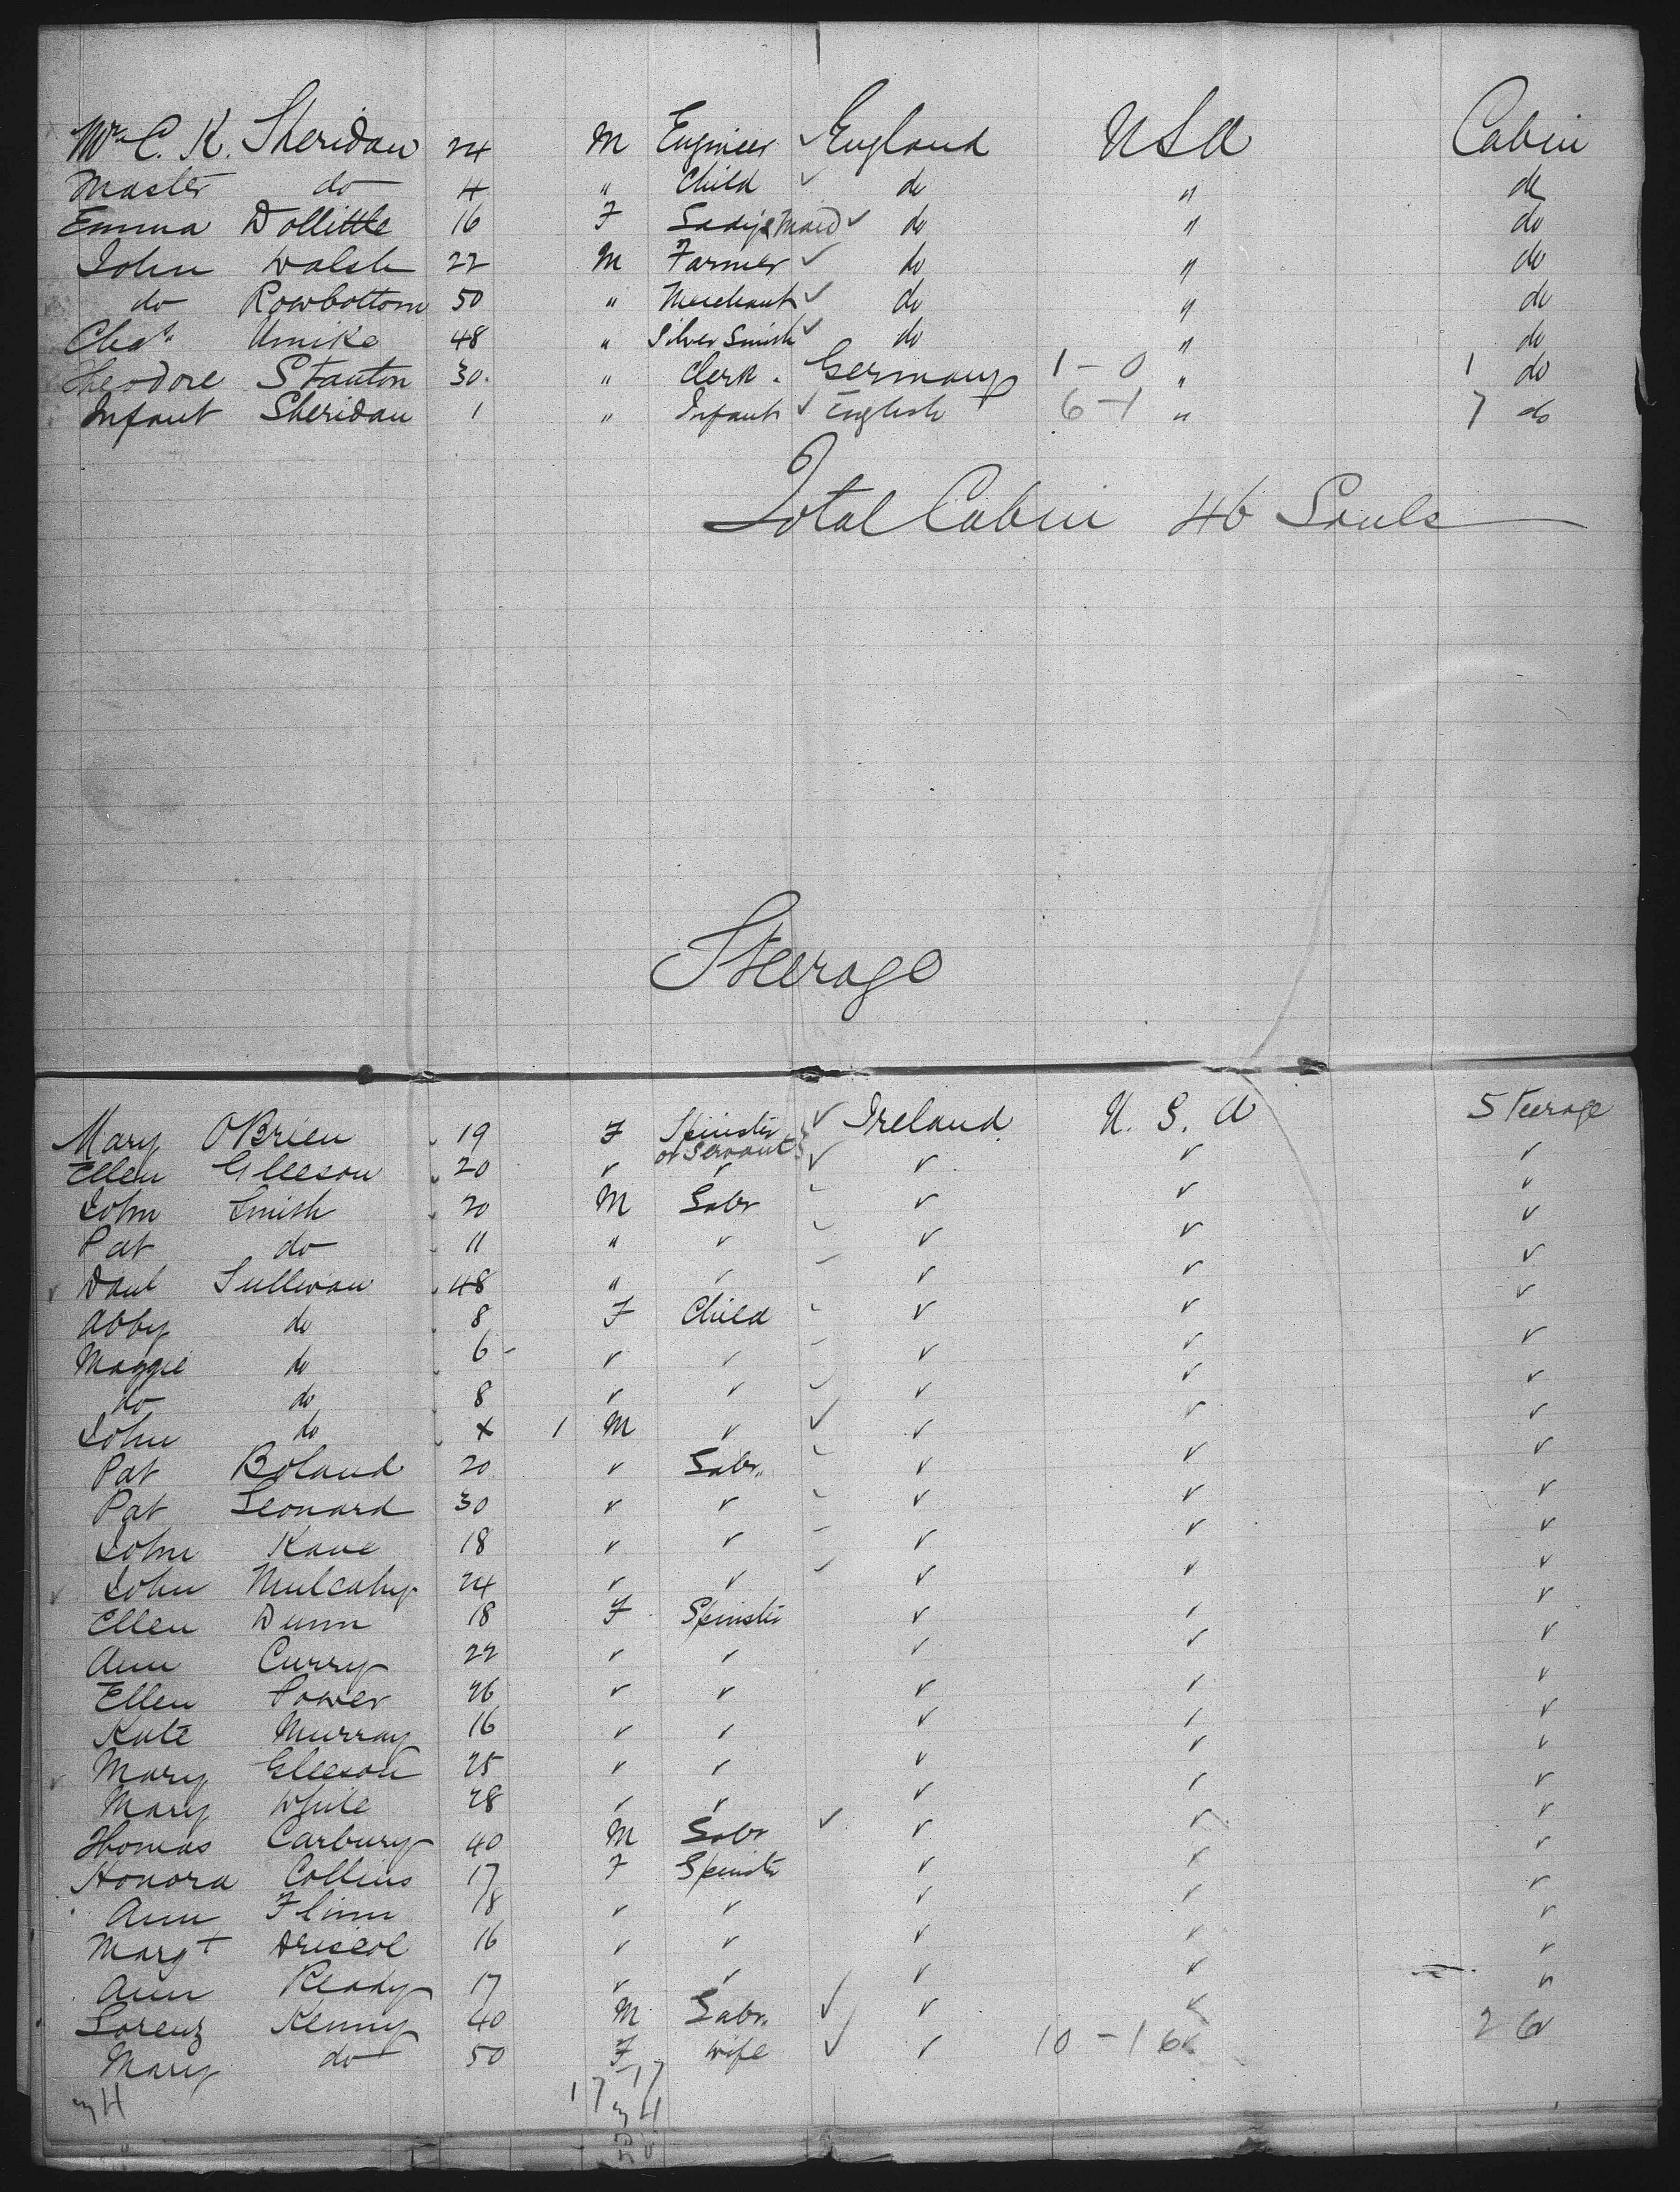 Mr C. K. Sheridan 24 M Engineer ✓ England U S A Cabin
Master do 4 " Child ✓ do " do
Emma Dollittle 16 F Ladys Maid ✓ do " do
John Walsh 22 M Farmer ✓ do " do
do Rowbottom 50 " Merchant ✓ do " do
Chas Umike 48 " Silver Smith ✓ do " do
Theodore Stanton 30. " Clerk . Germany 1 - 0 " 1 do
Infant Sheridan 1 " Infant ✓ English 6 - 1 " 7 do
Total Cabin 46 Souls
Steerage
Mary OBrien 19 F Spinster ✓ Ireland U. S. A Steerage
or Servant
Ellen Gleeson 20 ✓ ✓ ✓ ✓ ✓ ✓
John Smith 20 M Labr ✓ ✓ ✓
Pat do 11 " ✓ ✓ ✓ ✓
Danl Sullivan 48 " ✓ ✓ ✓ ✓
Abby do 8 F Child ✓ ✓ ✓
Maggie do 6 - ✓ ✓ ✓ ✓ ✓
do do 8 ✓ ✓ ✓ ✓ ✓ ✓
John do 1 M ✓ ✓ ✓ ✓ ✓
Pat Boland 20 ✓ Labr. ✓ ✓ ✓
Pat Leonard 30 ✓ ✓ ✓ ✓ ✓
John Kane 18 ✓ ✓ ✓ ✓ ✓
John Mulcahy 24 ✓ ✓ ✓ ✓ ✓
Ellen Dunn 18 F Spinster ✓ ✓ ✓
Ann Curry 22 ✓ ✓ ✓ ✓ ✓
Ellen Power 26 ✓ ✓ ✓ ✓ ✓
Kate Murray 16 ✓ ✓ ✓ ✓ ✓
Mary Gleeson 25 ✓ ✓ ✓ ✓ ✓
Mary White 28 ✓ ✓ ✓ ✓ ✓
Thomas Carbury 40 M Labr ✓ ✓ ✓ ✓
Honora Collins 17 F Spinster ✓ ✓ ✓
Ann Flinn 18 ✓ ✓ ✓ ✓ ✓
Margt Driscol 16 ✓ ✓ ✓ ✓ ✓
Ann Ready 17 ✓ ✓ ✓ ✓ ✓
Lorenz Kenny 40 M Labr. ✓ ✓ ✓ ✓
Mary do 50 F Wife ✓ ✓ 10 - 16 26
17 17